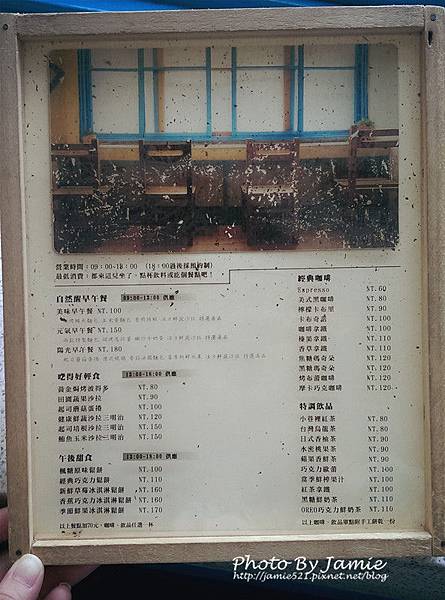 營業時間：09：00-18：00 (18：00過後採預約制)
最低消費：都來這兒坐了，點杯飲料或吃個餐點吧！
自然醒早午餐 09:00-13:00 供應
美味早午餐 NT.100
元氣早午餐 NT.150
陽光早午餐 NT.180
吃得好輕食 13:00-18:00 供應
黃金焗烤波得多 NT.80
田園蔬果沙拉 NT.90
起司蘑菇蛋捲 NT.100
健康鮮蔬沙拉三明治 NT.120
起司培根沙拉三明治 NT.150
鮪魚玉米沙拉三明治 NT.150
午後甜食 13:00-18:00 供應
楓糖原味鬆餅 NT.100
經典巧克力鬆餅 NT.110
新鮮草莓冰淇淋鬆餅 NT.160
香蕉巧克力冰淇淋鬆餅 NT.160
季節鮮果冰淇淋鬆餅 NT.170
以上餐點加70元，咖啡、飲品任選一杯
經典咖啡
Espresso NT.60
美式黑咖啡 NT.80
檸檬卡布里 NT.90
卡布奇諾 NT.100
咖啡拿鐵 NT.100
榛果拿鐵 NT.110
香草拿鐵 NT.110
焦糖瑪奇朵 NT.120
黑糖瑪奇朵 NT.120
烤布蕾咖啡 NT.120
摩卡巧克咖啡 NT.120
特調飲品
小巷裡紅茶 NT.80
台灣烏龍茶 NT.80
日式香柚茶 NT.90
水蜜桃果茶 NT.90
蘋果香鮮茶 NT.90
巧克力歐蕾 NT.100
當季鮮榨果汁 NT.100
紅茶拿鐵 NT.100
黑糖鮮奶茶 NT.110
OREO巧克力鮮奶茶 NT.110
以上咖啡、飲品單點附手工餅乾一份
Photo By Jamie
http://jamie521.pixnet.net/blog